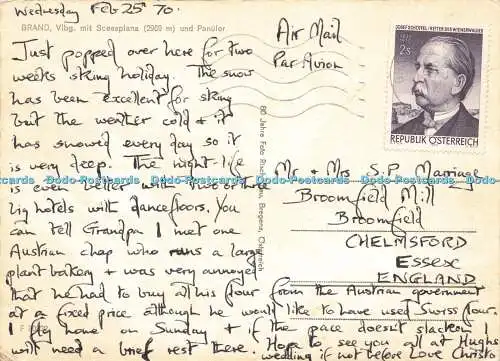 Wednesday Feb 25th 70.
BRAND, Vlbg. mit Scesaplana (2969 m) und Panüler
Air Mail
Par Avion
JOSEF SCHÖFFEL / RETTER DES WIENERWALDES
2S
REPUBLIK ÖSTERREICH
Just popped over here for two
weeks skiing holiday. The snow
has been excellent for skiing
but the weather cold & it
has snowed every day so it
is very deep. The night-life
is even better with two or three
big hotels with dancefloors. You
can tell Grandpa I met one
Austrian chap who runs a large
plant bakery & was very annoyed
that he had to buy all his flour from the Austrian government
at a fixed price although he would like to have used Swiss flour.
I fly home on Sunday & if the pace doesn't slacken I
will need a brief rest there. Hope to see you all at Hughs
wedding if not before Love Chris
80 Jahre Foto Bregenz, Österreich
Mr & Mrs S.P. Marriage
Broomfield Mill
Broomfield
CHELMSFORD
ESSEX
ENGLAND
Dodo-Postcards Dodo-Postcards Dodo-Postcards Dodo-Postcards